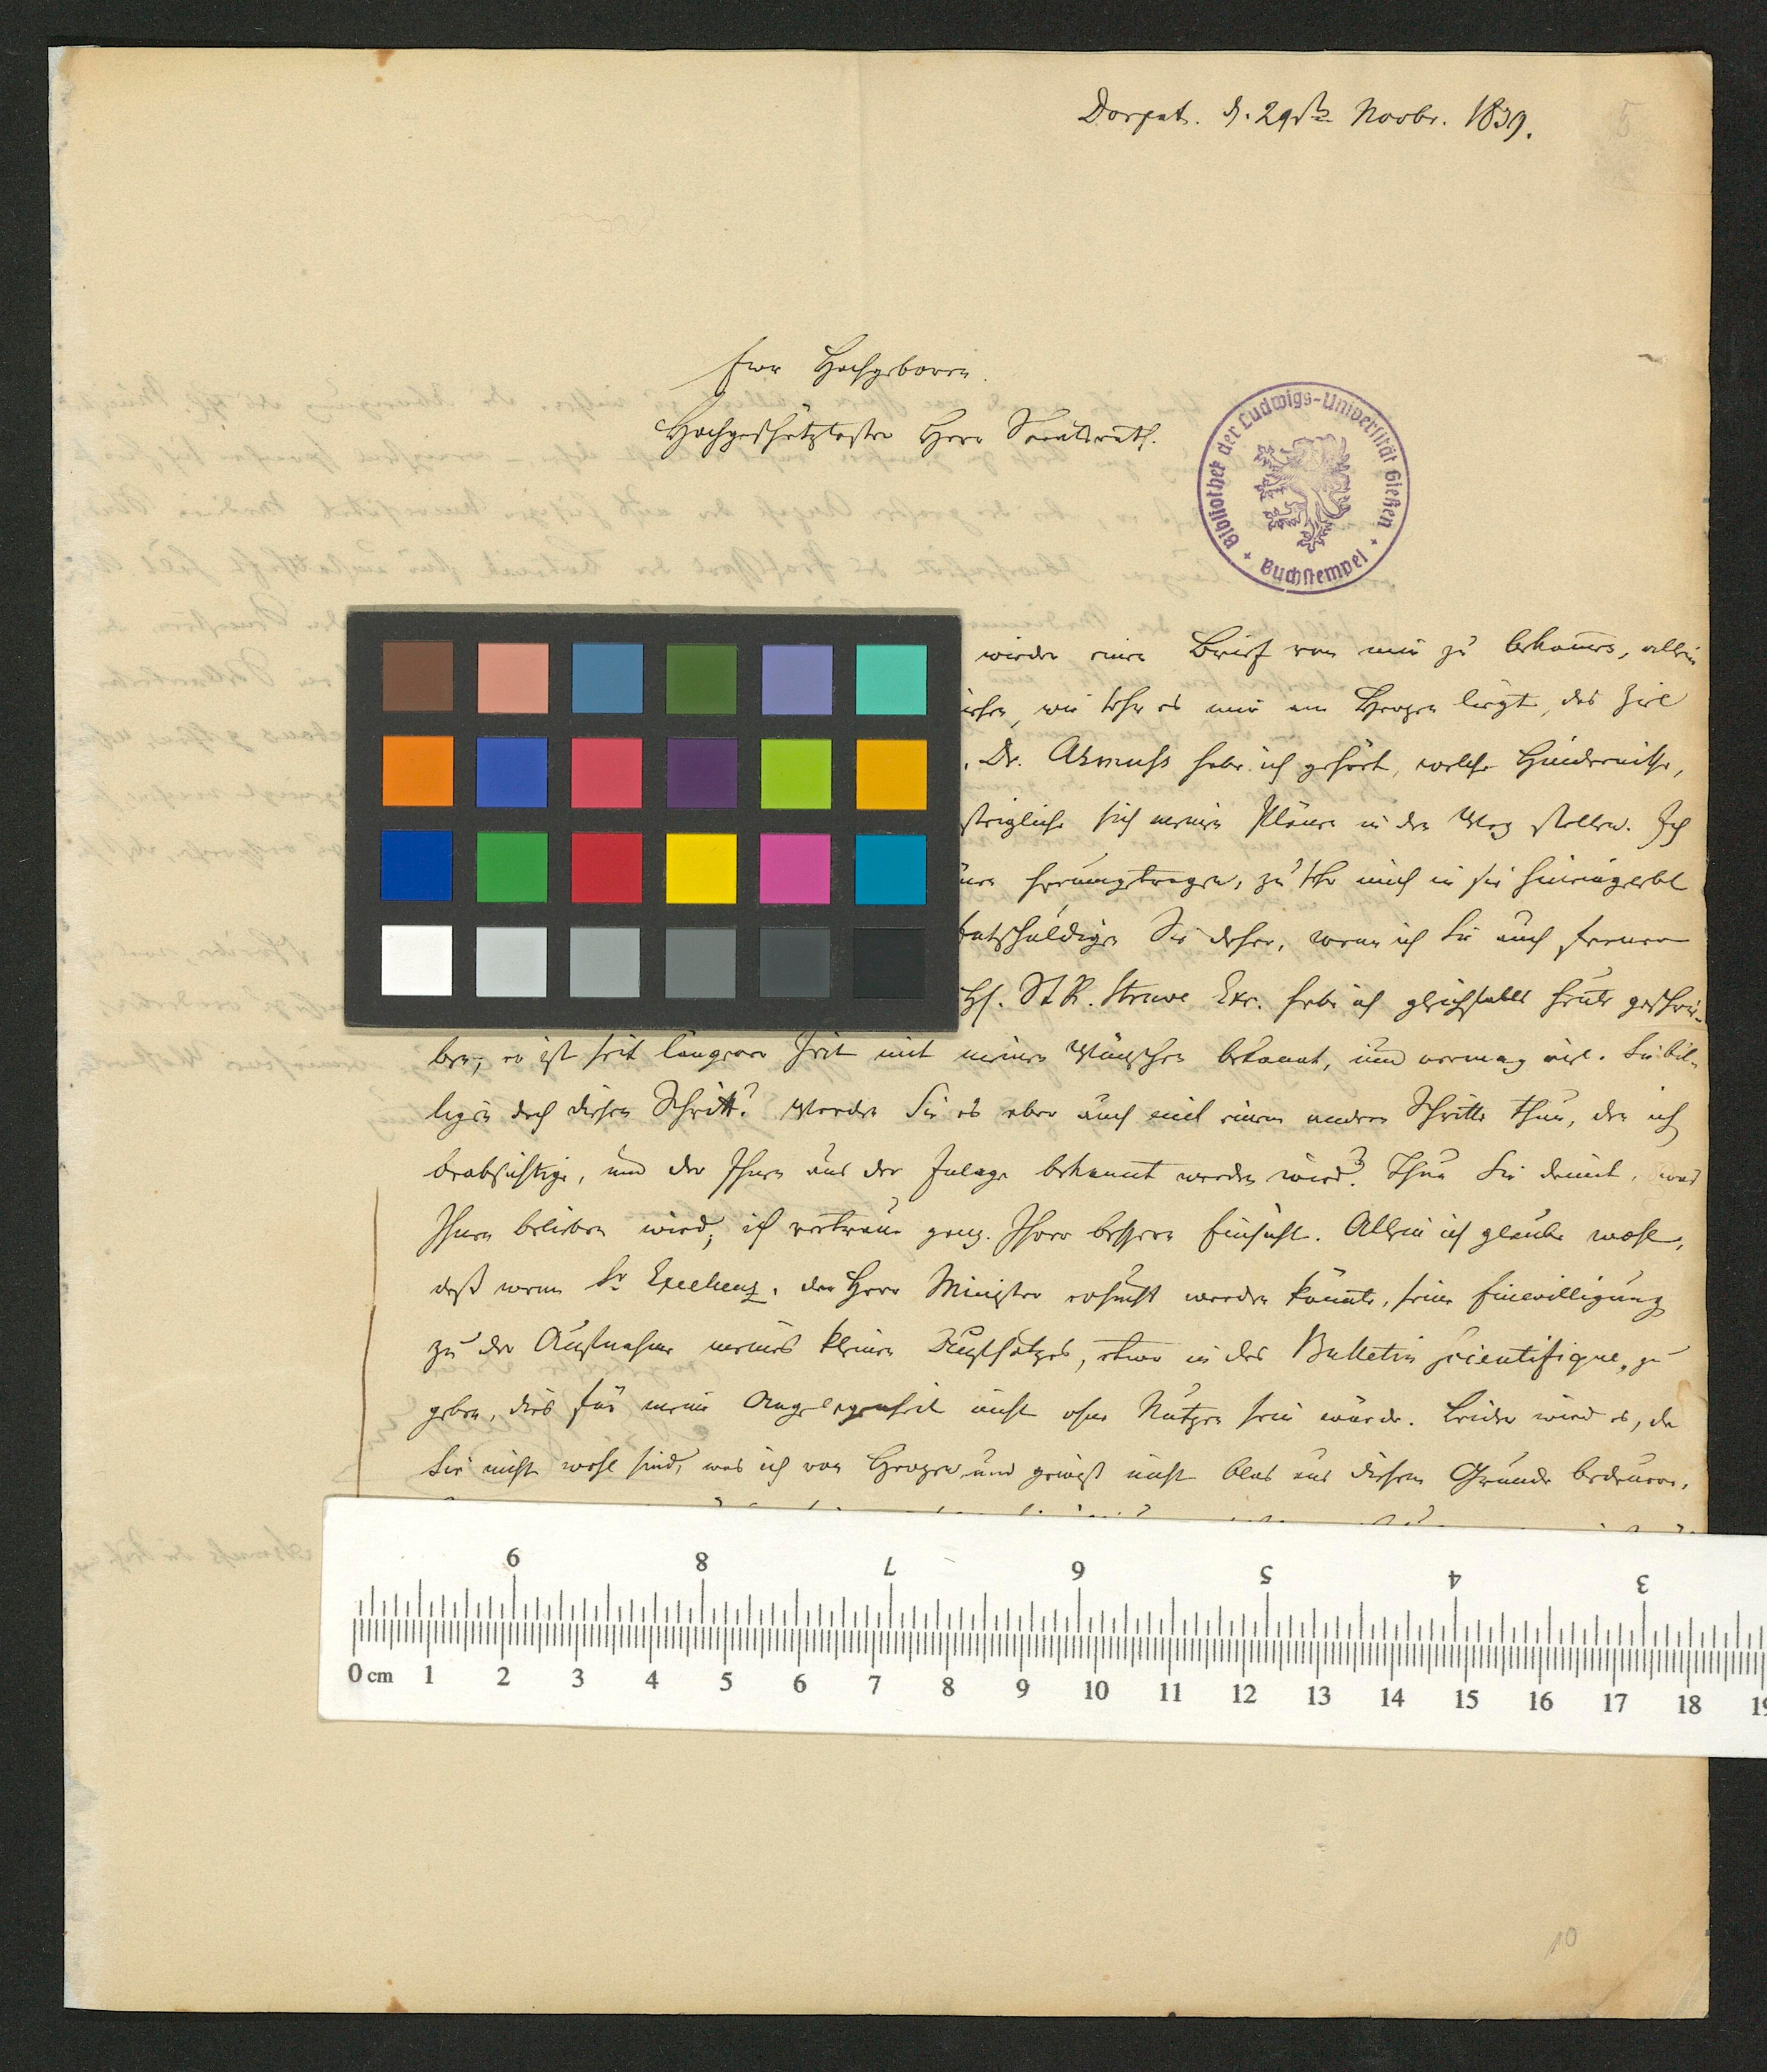 Dorpat. d. 29sten Novbr. 1839.
5
Euer Hochgeboren.
Hochgeschätztester Herr Staatsrath.
Bibliothek der Ludwigs-Universität Gießen
Buchstempel
wieder einen Brief von mir zu bekommen, allein
wie sehr es mir am Herzen liegt, das Ziel
Dr. Asmuss habe ich gehört, welche Hindernisse,
sich meinen Plänen in den Weg stellen. Ich
herumgetragen, zu sehr mich in sie hineingelebt
Entschuldigen Sie daher, wenn ich Sie auch ferner
St. R. Struve Exc. habe ich gleichfalls heute geschrie-
ben; er ist seit längerer Zeit mit meinen Wünschen bekannt, und vermag viel. Sie bil-
ligen doch diesen Schritt? Werden Sie es aber auch mit einem andern Schritte thun, den ich
beabsichtige, und der Ihnen aus der Inlage bekannt werden wird? Thun Sie damit, was
Ihnen belieben wird; ich vertraue ganz Ihrer bessern Einsicht. Allein ich glaube wohl,
daß wenn Sr Excellenz, der Herr Minister ersucht werden könnte, seine Einwilligung
zu der Aufnahme meines kleinen Aufsatzes, etwa in das Bulletin scientifique, zu
geben, dies für meine Angelegenheit nicht ohne Nutzen sein würde. Leider wird es, da
Sie nicht wohl sind, was ich von Herzen und gewiß nicht blos aus diesem Grunde bedaure,
9 8 7 6 5 4 3
0 cm 1 2 3 4 5 6 7 8 9 10 11 12 13 14 15 16 17 18 19
10